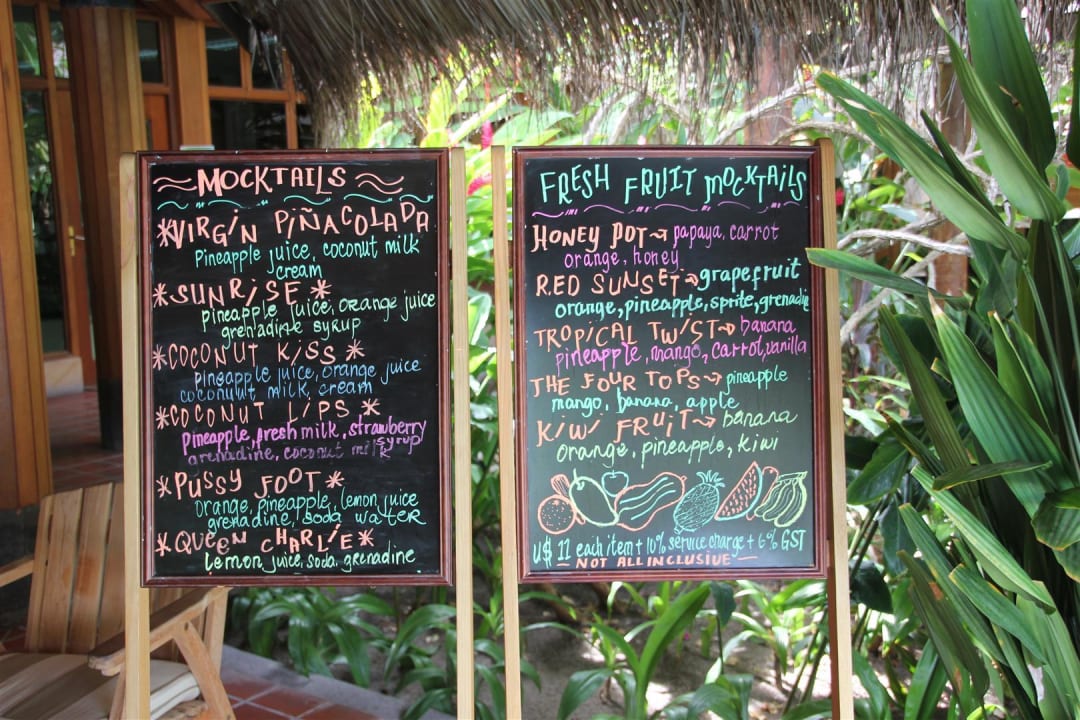 MOCKTAILS
*VIRGIN PIÑACOLADA
Pineapple juice, coconut milk
cream
*SUNRISE*
pineapple juice, orange juice
grenadine syrup
*COCONUT KISS*
pineapple juice, orange juice
coconut milk, cream
*COCONUT LIPS*
pineapple, fresh milk, strawberry
grenadine, coconut milk syrup
*PUSSY FOOT*
Orange, pineapple, lemon juice
grenadine, soda water
*QUEEN CHARLIE*
lemon juice, soda, grenadine
FRESH FRUIT MOCKTAILS
HONEY POT→ papaya, carrot
orange, honey
RED SUNSET→ grapefruit
orange, pineapple, sprite, grenadine
TROPICAL TWIST→ banana
pineapple, mango, carrot, vanilla
THE FOUR TOPS→ pineapple
mango, banana, apple
KIWI FRUIT→ banana
orange, pineapple, kiwi
U$ 11 each item + 10% service charge + 6% GST
— NOT ALL INCLUSIVE —